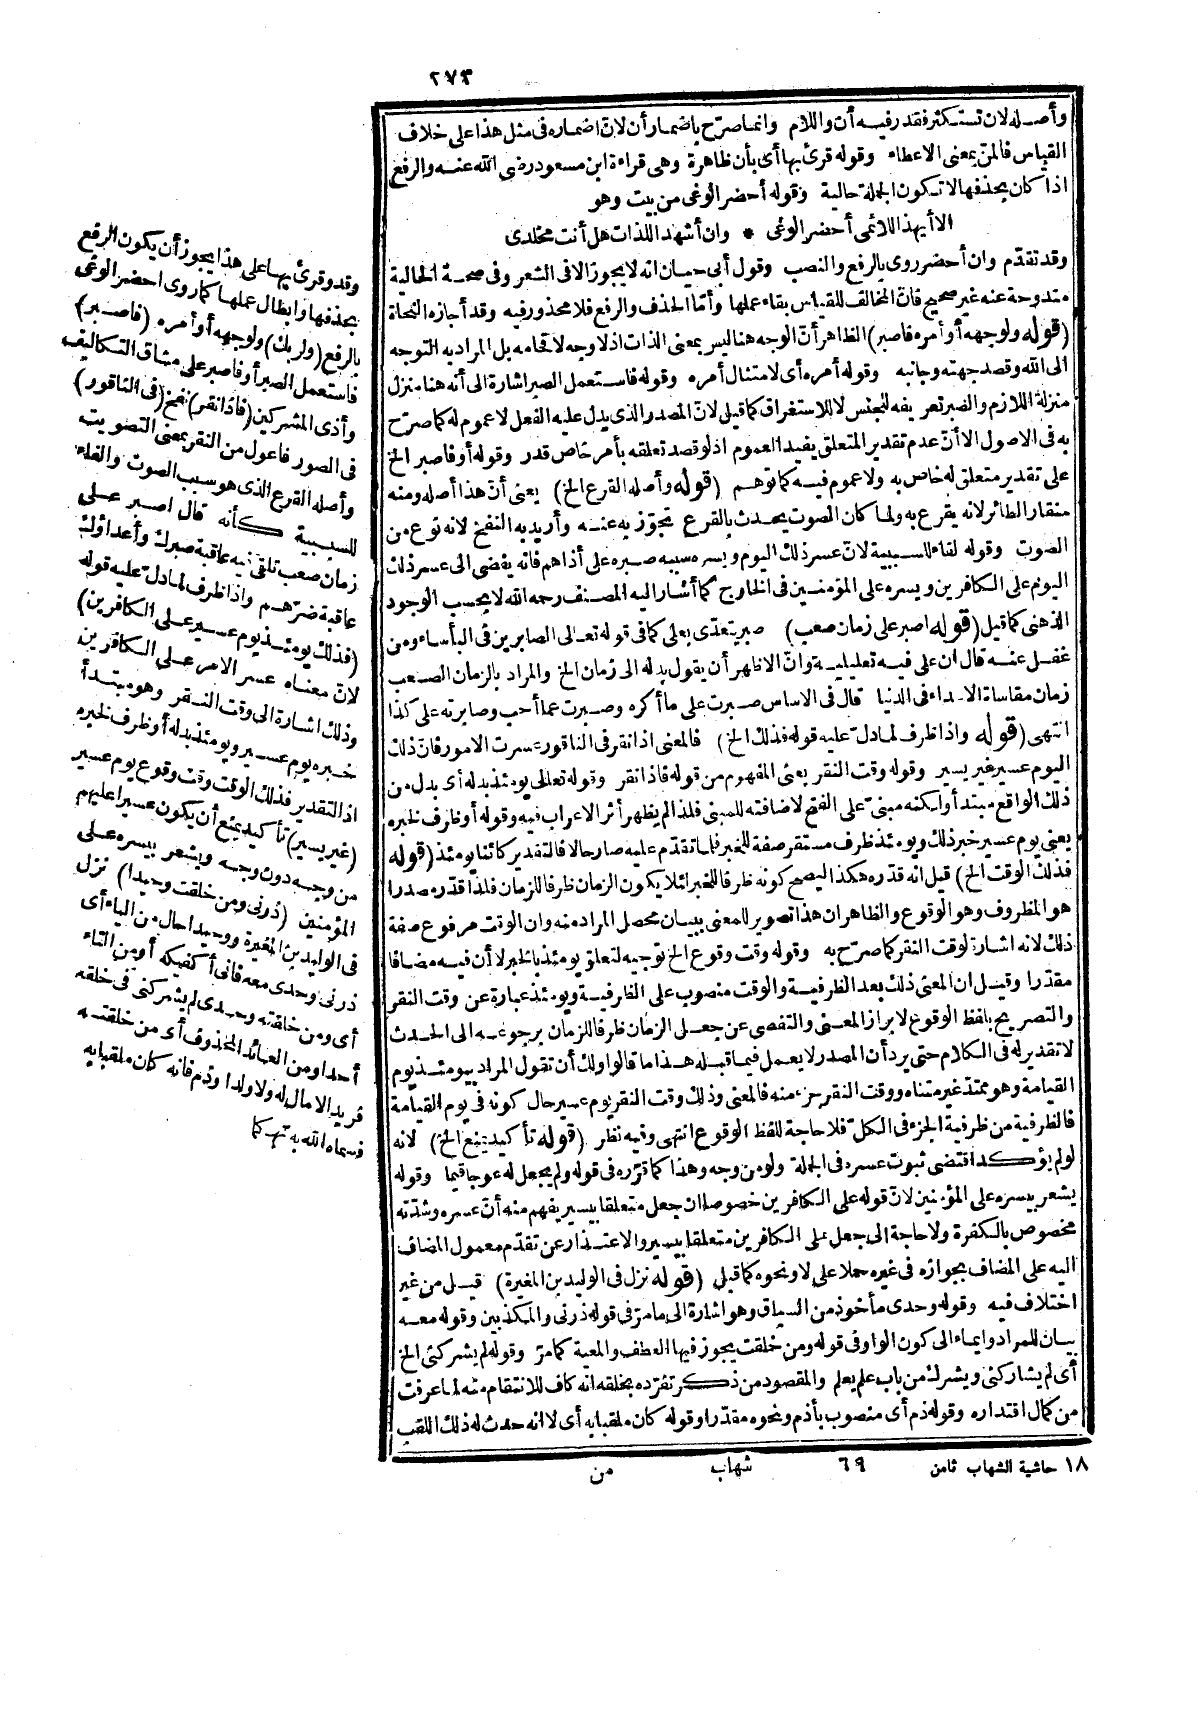 ٢٧٣
وأصله لان تستكثر فقدر فيه أن واللام وانما صرّح باضمار أن لانّ اضماره فى مثل هذا على خلاف
القياس فالمنّ بمعنى الاعطاء وقوله قرئ بها أى بأن ظاهرة وهى قراءة ابن مسعود رضى الله عنه والرفع
اذا كان بحذفها لا تكون الجملة حالية وقوله أحضر الوغى من بيت وهو
الا أيهذا اللائمى أحضر الوغى * وان أشهد اللذات هل أنت مخلدى
وقد تقدّم وان أحضر روى بالرفع والنصب وقول أبى حيان انه لا يجوز الا فى الشعر وفى صحة الحالية
مندوحة عنه غير صحيح فانّ المخالف للقياس بقاء عملها وأمّا الحذف والرفع فلا محذور فيه وقد أجازه النحاة
(قوله ولوجهه أو أمره فاصبر) الظاهر أنّ الوجه هنا ليس بمعنى الذات اذ لا وجه لاقحامه بل المراد به التوجه
الى الله وقصد جهته وجانبه وقوله أمره أى لامتثال أمره وقوله فاستعمل الصبر اشارة الى أنه هنا منزل
منزلة اللازم والصبر تعريفه للجنس لا للاستغراق كما قيل لانّ المصدر الذى يدل عليه الفعل لا عموم له كما صرّح
به فى الاصول الا أنّ عدم تقدير المتعلق يفيد العموم اذ لو قصد تعلقه بأمر خاص قدر وقوله أو فاصبر الخ
على تقدير متعلق له خاص به ولا عموم فيه كما توهم (قوله وأصله القرع الخ) يعنى أنّ هذا أصله ومنه
منقار الطائر لانه يقرع به ولما كان الصوت يحدث بالقرع تجوّز به عنه وأريد به النفخ لانه نوع من
الصوت وقوله لقاء للسببية لانّ عسر ذلك اليوم ويسره سببه صبره على أذاهم فانه يفضى الى عسر ذلك
اليوم على الكافرين ويسره على المؤمنين فى الخارج كما أشار اليه المصنف رحمه الله لا بحسب الوجود
الذهنى كما قيل (قوله اصبر على زمان صعب) صبر يتعدّى بعلى كما فى قوله تعالى الصابرين فى البأساء ومن
غفل عنه قال ان على فيه تعليلية وانّ الاظهر أن يقول بدله الى زمان الخ والمراد بالزمان الصعب
زمان مقاساة الاعداء فى الدنيا قال فى الاساس صبرت على ما أكره وصبرت عما أحب وصابرته على كذا
انتهى (قوله واذا ظرف لما دل عليه قوله فذلك الخ) فالمعنى اذا نقر فى الناقور عسرت الامور فان ذلك
اليوم عسير غير يسير وقوله وقت النقر يعنى المفهوم من قوله فاذا نقر وقوله تعالى يومئذ بدله أى بدل من
ذلك الواقع مبتدأ ولكنه مبنىّ على الفتح لاضافته للمبنى فلذا لم يظهر أثر الاعراب فيه وقوله أو ظرف لخبره
يعنى يوم عسير خبر ذلك ويومئذ ظرف مستقر صفة للخبر فلما تقدّم عليه صار حالا فالتقدير كائنا يومئذ (قوله
فذلك الوقت الخ) قيل انه قدره هكذا ليصح كونه ظرفا للخبر لئلا يكون الزمان ظرفا للزمان فلذا قدّره مصدرا
هو المظروف وهو الوقوع والظاهر ان هذا تصوير للمعنى ببيان محصل المراد منه وان الوقت مرفوع صفة
ذلك لانه اشارة لوقت النقر كما صرّح به وقوله وقت وقوع الخ توجيه لتعلق يومئذ بالخبر لا أن فيه مضافا
مقدّرا وقيل ان المعنى ذلك بعد الظرفية والوقت منصوب على الظرفية ويومئذ عبارة عن وقت النقر
والتصريح بلفظ الوقوع لابراز المعنى والتفصى عن جعل الزمان ظرفا للزمان برجوعه الى الحدث
لا تقديره فى الكلام حتى يرد أن المصدر لا يعمل فيما قبله هذا ما قالوا ولك أن تقول المراد بيومئذ يوم
القيامة وهو ممتد غير متناه ووقت النقر جزء منه فالمعنى وذلك وقت النقر يوم عسير حال كونه فى يوم القيامة
فالظرفية من ظرفية الجزء فى الكل فلا حاجة للفظ الوقوع انتهى وفيه نظر (قوله تأكيد يمنع الخ) لانه
لو لم يؤكد اقتضى ثبوت عسره فى الجملة ولو من وجه وهذا كما قرّره فى قوله ولم يجعل له عوجا قيما وقوله
يشعر بيسره على المؤمنين لانّ قوله على الكافرين خصوصا ان جعل متعلقا بيسير يفهم منه أنّ عسره وشدّته
مخصوص بالكفرة ولا حاجة الى جعل على الكافرين متعلقا بيسير والاعتذار عن تقدّم معمول المضاف
اليه على المضاف بجوازه فى غير حملا على لا ونحوه كما قيل (قوله نزل فى الوليد بن المغيرة) قيل من غير
اختلاف فيه وقوله وحدى مأخوذ من السياق وهو اشارة الى ما مرّ فى قوله ذرنى والمكذبين وقوله معه
بيان للمراد وايماء الى كون الواو فى قوله ومن خلقت يجوز فيها العطف والمعية كما مرّ وقوله لم يشركنى الخ
أى لم يشاركنى ويشرك من باب علم يعلم والمقصود من ذكر تفرّده بخلقه انه كاف للانتقام منه لما عرفت
من كمال اقتداره وقوله ذم أى منصوب بأذم ونحوه مقدّرا وقوله كان ملقبا به أى لا انه حدث له ذلك اللقب
١٨ حاشية الشهاب ثامن ٦٩ شهاب من
وقد وقرئ بها على هذا يجوز أن يكون الرفع
بحذفها وابطال عملها كما روى احضر الوغى
بالرفع (ولربك) ولوجهه أو أمره (فاصبر)
فاستعمل الصبر أو فاصبر على مشاق التكاليف
وأذى المشركين (فاذا نقر) نفخ (فى الناقور)
فى الصور فاعول من النقر بمعنى التصويت
وأصله القرع الذى هو سبب الصوت والفاء
للسببية كأنه قال اصبر على
زمان صعب تلقى فيه عاقبة صبرك وأعداؤك
عاقبة ضرّهم واذا ظرف لما دلّ عليه قوله
(فذلك يومئذ يوم عسير على الكافرين)
لانّ معناه عسر الامر على الكافرين
وذلك اشارة الى وقت النقر وهو مبتدأ
خبره يوم عسير ويومئذ بدله أو ظرف لخبره
اذ التقدير فذلك الوقت وقت وقوع يوم عسير
(غير يسير) تأكيد يمنع أن يكون عسيرا عليهم
من وجه دون وجه ويشعر بيسره على
المؤمنين (ذرنى ومن خلقت وحيدا) نزل
فى الوليد بن المغيرة ووحيدا حال من الياء أى
ذرنى وحدى معه فانى أكفيكه أو من التاء
أى ومن خلقته وحدى لم يشركنى فى خلقه
أحد أو من العائد المحذوف أى من خلقته
فريدا لا مال له ولا ولد أو ذم فانه كان ملقبا به
فسماه الله به تهكما